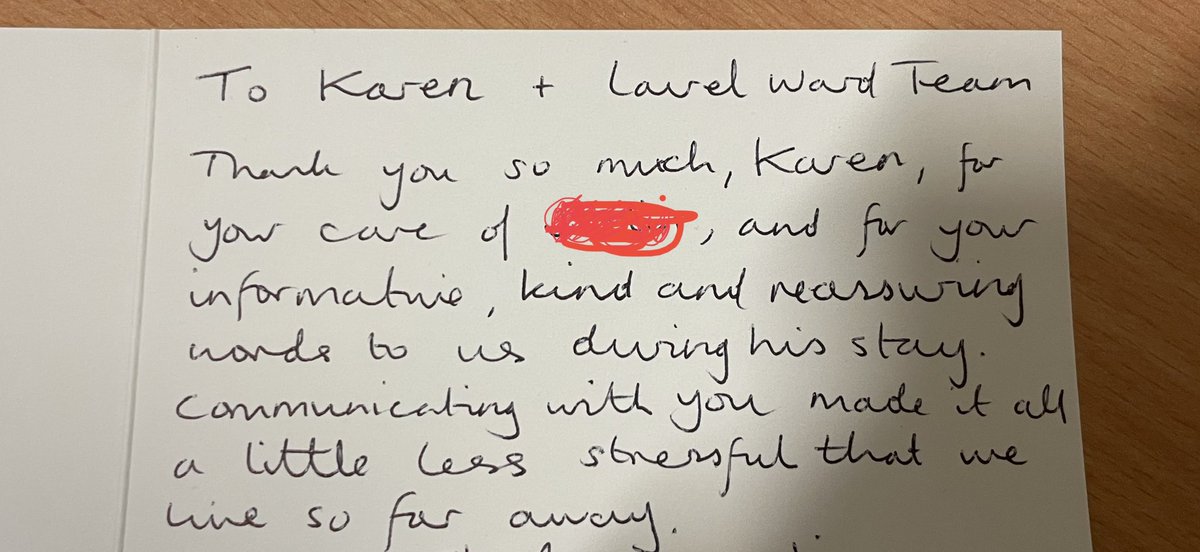 To Karen + Laurel Ward Team
Thank you so much, Karen, for
your care of , and for your
informative, kind and reassuring
words to us during his stay.
Communicating with you made it all
a little less stressful that we
live so far away.